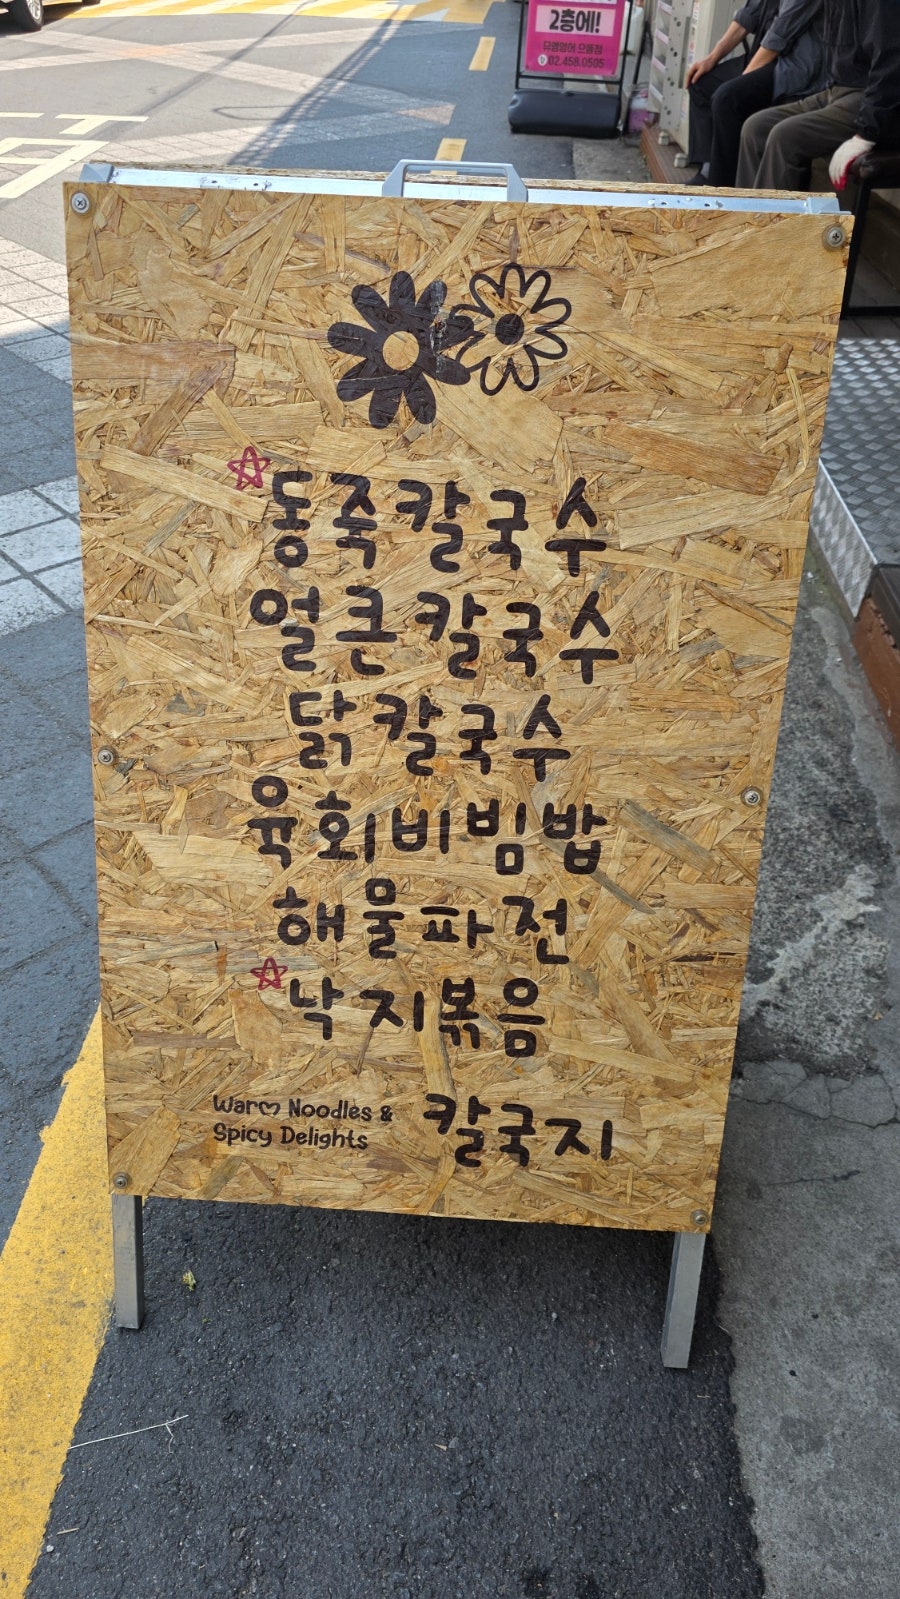 2층에!
뮤엠영어 으뜸점
02.458.0505
동죽칼국수
얼큰칼국수
닭칼국수
육회비빔밥
해물파전
낙지볶음
Warm Noodles &
Spicy Delights
칼국지